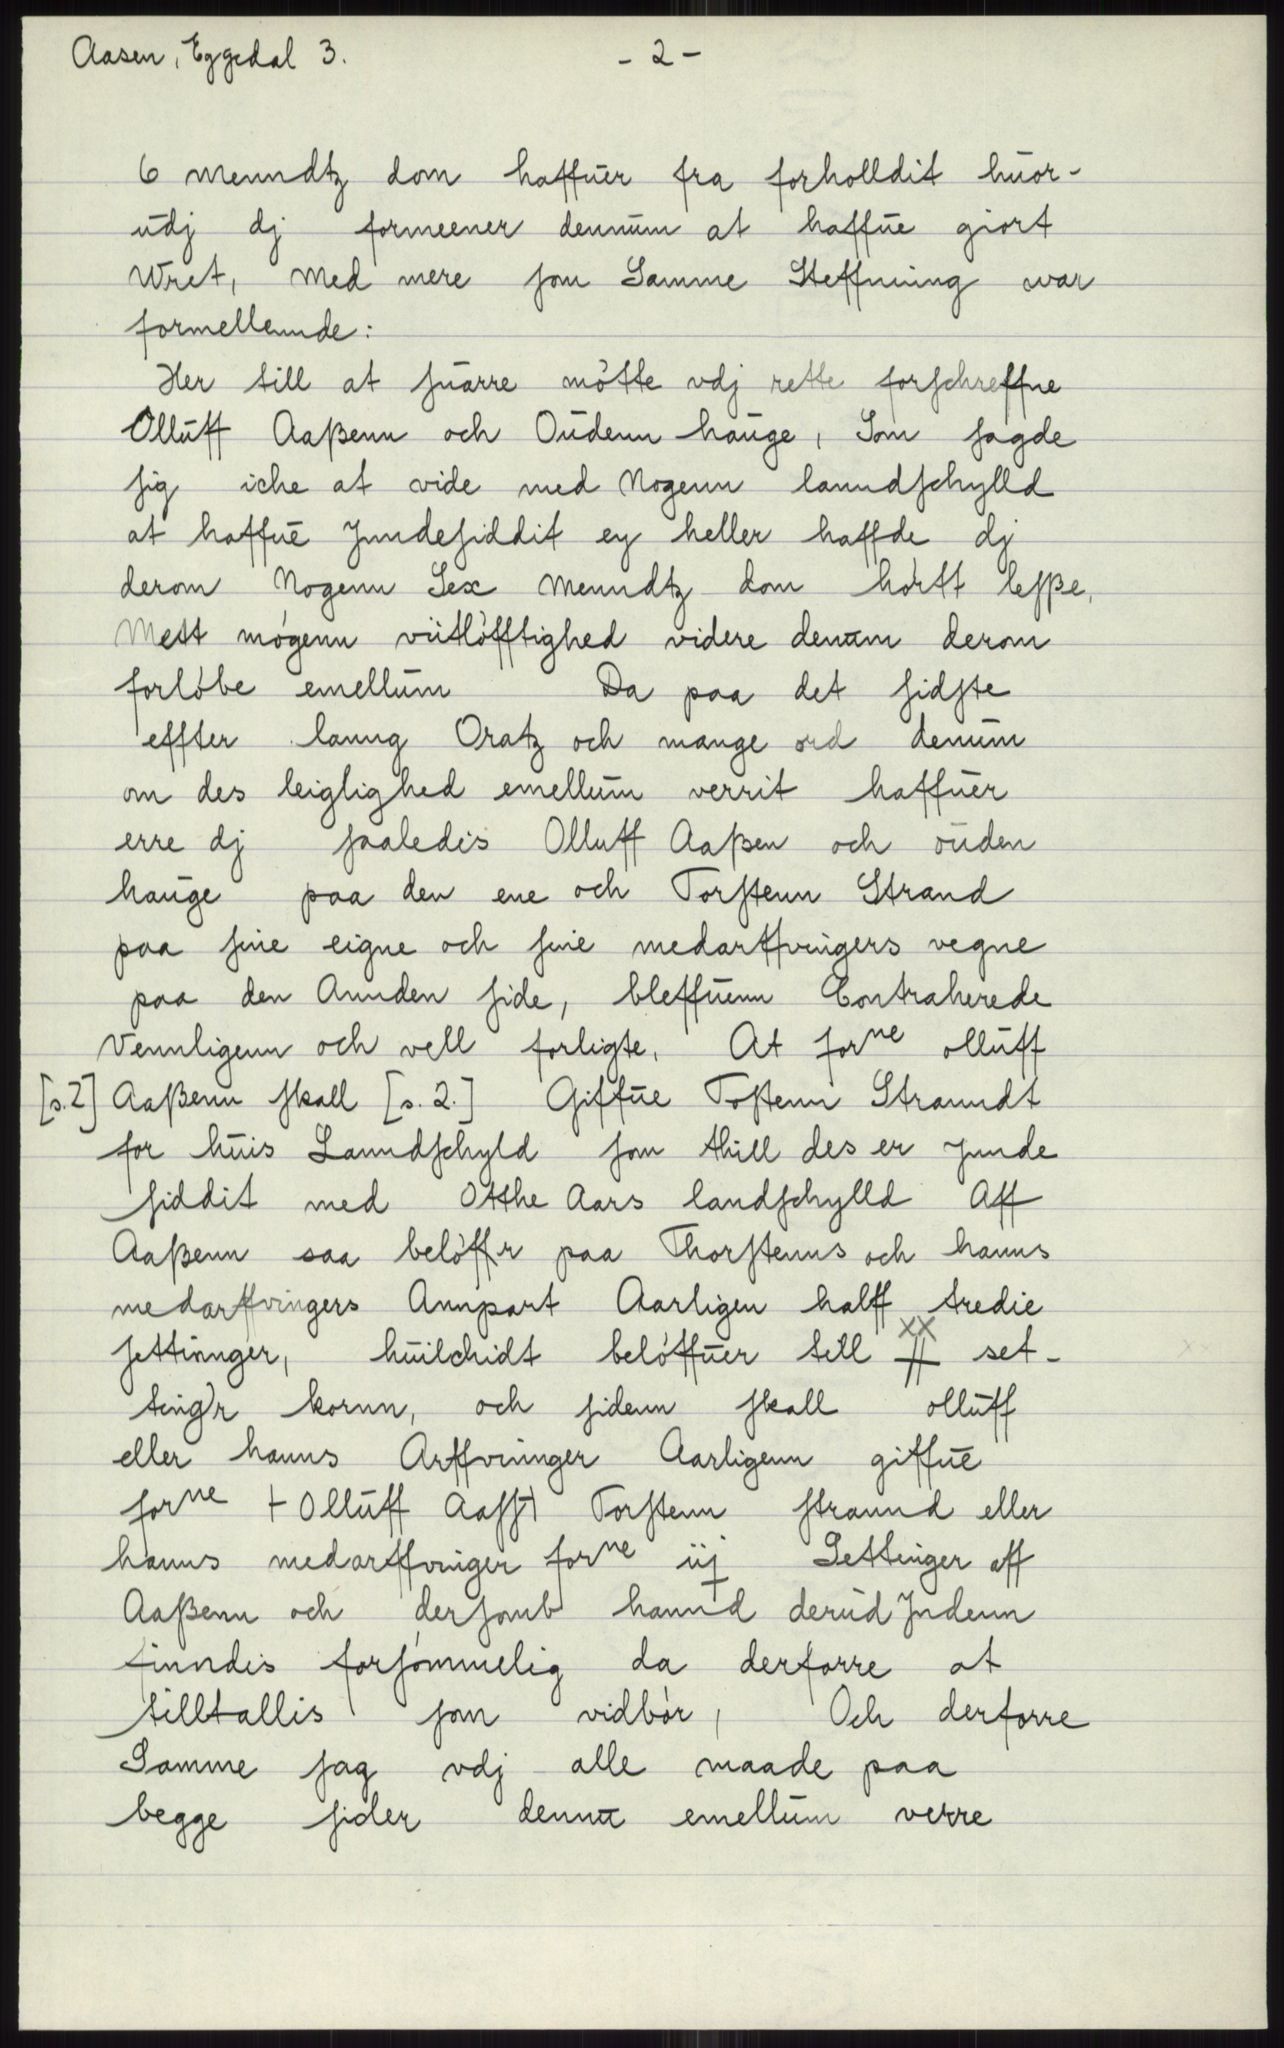 Aasen, Eggedal 3. - 2 -
6 menndtz dom haffuer fra forholldit huor-
udj dj formeener dennum at haffue giort
Wret, Med mere som Samme Steffning war
formellennde:
Her till at suarre mötte vdj rette forschreffne
Olluff Aaßenn och Oudenn hauge, Som sagde
sig iche at vide med Nogenn lanndschylld
at haffue Jnndesiddit ey heller haffde dj
derom Nogenn Sex Menndtz dom hørtt lesße,
Mett mögenn viitlöfftighed videre denum derom
forlöbe emellum Da paa det sidste
effter lanng Oratz och mange ord denum
om des leiglighed emellum verrit haffuer
erre dj saaledis Olluff Aaßen och ouden
hauge paa den ene och Torstenn Strand
paa sine eigne och sine medarffvingers vegne
paa den Annden side, bleffuenn Contraherede
Vennligenn och vell forligte, At forne olluff
[s.2] Aaßenn skall [s. 2.] Giffue Tostenn Stranndt
for huis Lanndschyld som thill des er Jnnde
siddit med Otthe Aars landschylld Aff
Aaßenn saa belöffr paa Thorstenns och hanns
medarffvingers Annpart Aarligen halff tredie
settinnger, huilchidt belöffuer till xx set-
ting)r kornn, och sidenn skall olluff
eller hanns Arffvinnger Aarligenn giffue
forne + Olluff Aass+ Torstenn strannd eller
hanns medarffvinger forne iij Settinger aff
Aaßenn och dersomb hannd derud Jndenn
finndis forsömmelig da derforre at
tilltallis som vidbör, Och derforre
Samme sag vdj alle maade paa
begge sider denna emellum verre